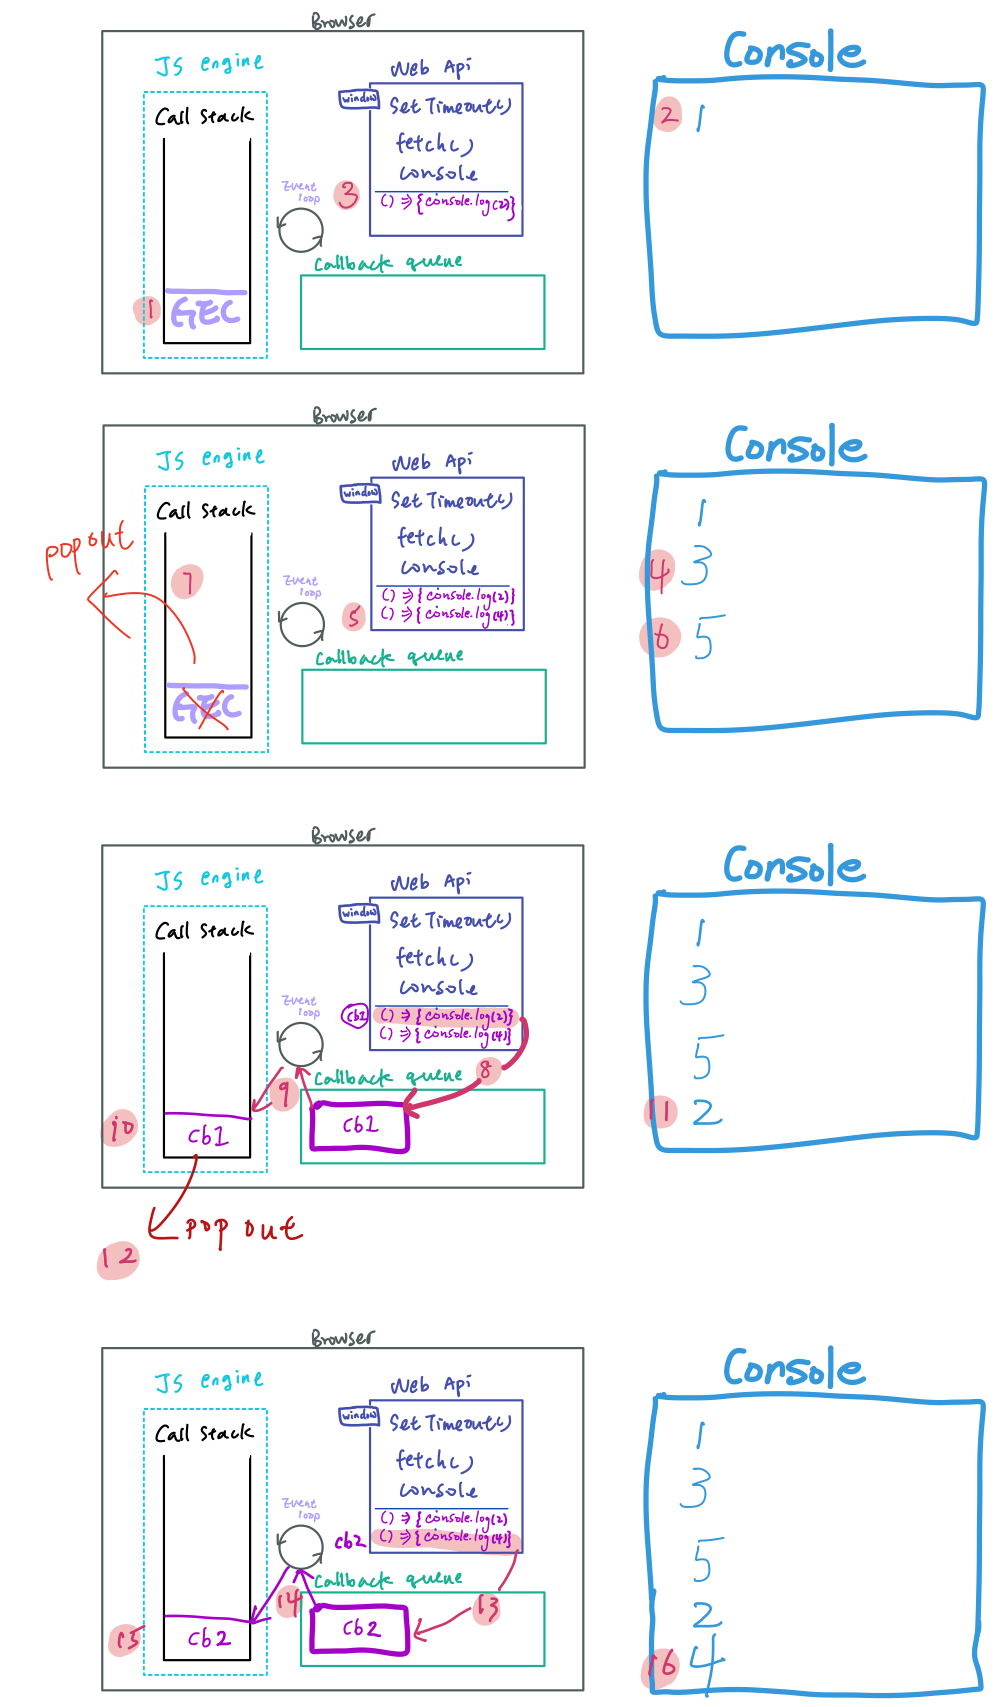 Browser
JS engine
Call Stack
Web Api
window
SetTimeout()
fetch()
console
() => {console.log(2)}
Event loop
3
Callback queue
1
GEC
Console
2 1
Browser
JS engine
Call Stack
pop out
7
GEC
Web Api
window
SetTimeout()
fetch()
console
() => {console.log(2)}
() => {console.log(4)}
Event loop
5
Callback queue
Console
1
4 3
6 5
Browser
JS engine
Call Stack
Web Api
window
SetTimeout()
fetch()
console
cb1 () => {console.log(2)}
() => {console.log(4)}
Event loop
Callback queue 8
9
cb1
10 cb1
pop out
12
Console
1
3
5
11 2
Browser
JS engine
Call Stack
Web Api
window
SetTimeout()
fetch()
console
() => {console.log(2)
cb2 () => {console.log(4)}
Event loop
Callback queue
14
13
cb2
15 cb2
Console
1
3
5
2
16 4